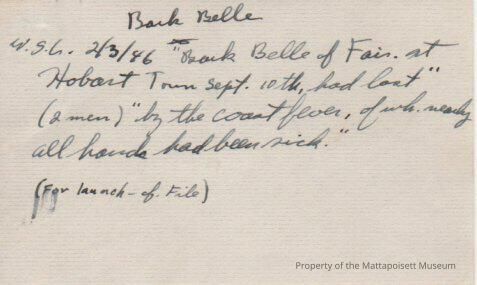 Bark Belle
W.S.L. 2/3/46 "Bark Belle of Fair. at
Hobart Town Sept. 10th, had lost"
(2 men) "by the coast fever, of wh. nearly
all hands had been sick."
(For launch - cf. File)
Property of the Mattapoisett Museum